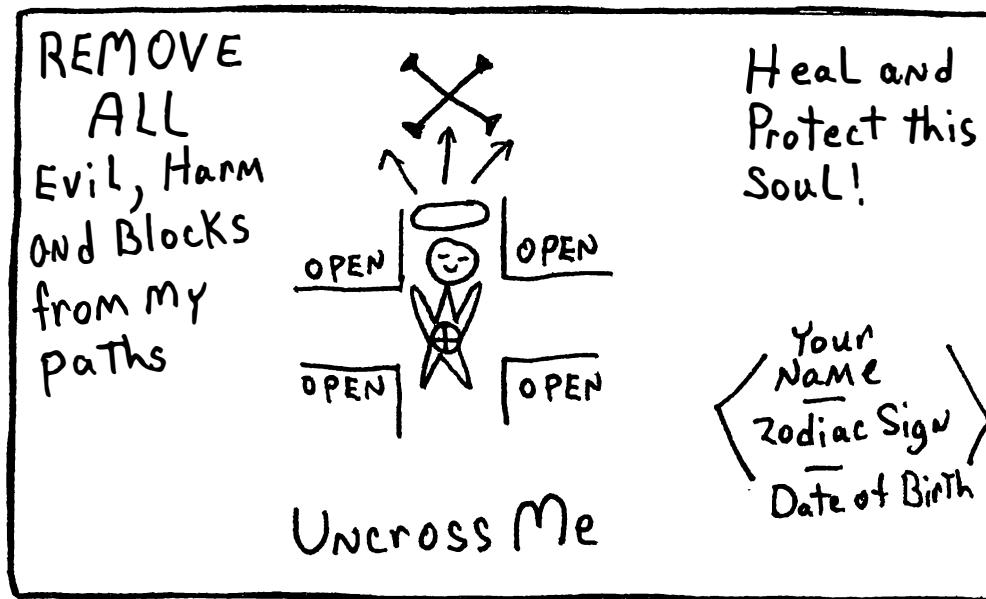 REMOVE
ALL
Evil, Harm
and Blocks
from my
paths
OPEN
OPEN
OPEN
OPEN
Heal and
Protect this
Soul!
Your
Name
Zodiac Sign
Date of Birth
Uncross Me